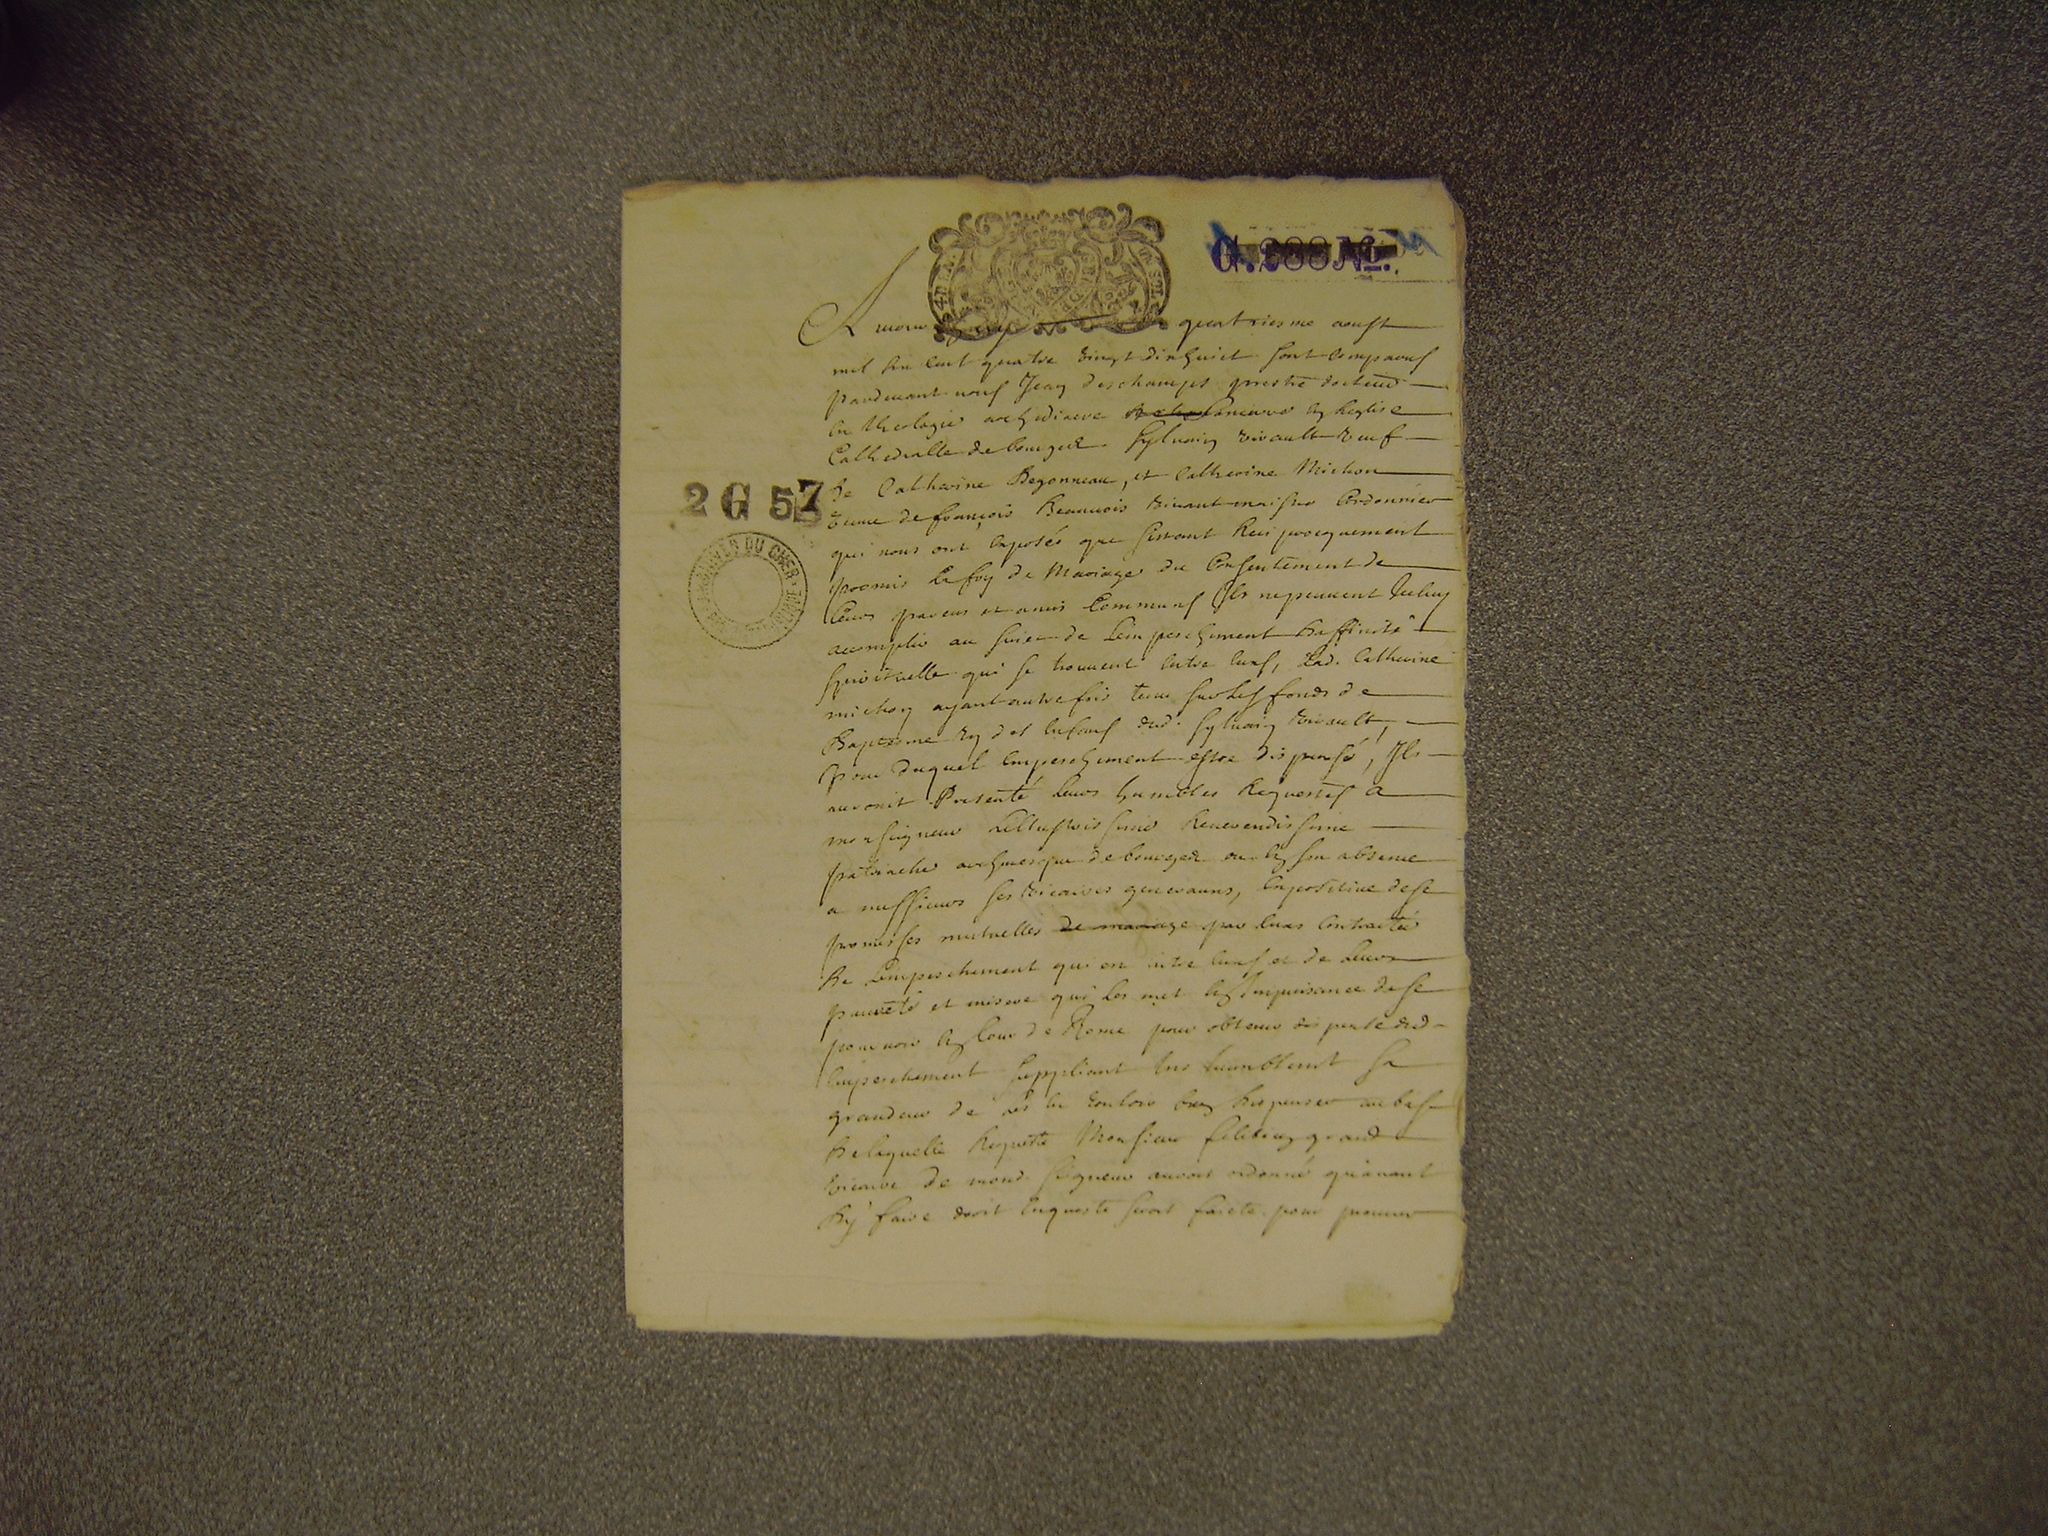 G. 288 No.
quatriesme aoust
mil six cent quatre vingt dix huict sont comparus
pardevant nous Jean deschamps prestre docteur
en theologie archidiacre en leglise
Cathedralle de bourges Sylvain veuf
de Catherine Begonneau, et Catherine Michon
2 G 57
veufve de françois Beauvois vivant maistre Cordonnier
qui nous ont exposés que sestant Reciproquement
ARCHIVES DU CHER
promis la foy de Mariage du Consentement de
leurs parens et amis Communs Ils ne peuvent
accomplir au suiet de Lempeschement daffinité
spirituelle qui se trouvent entre eux, lad. Catherine
michon ayant autrefois tenu sur les fonds de
Baptesme un des enfans dud. Sylvain
pour duquel empeschement estre dispensé, Ils
auroit Presenté leurs humbles Requestes a
monseigneur Lillustrissime Reverendissime
patriache archevesque de bourges ou en son absence
a messieurs ses vicaires generaux, de
promesses mutuelles de mariage par eux Contractée
de Lempeschement qui est entre eux et de Leurs
pauvreté et misere qui les met en Impuisance de se
pourvoir en Cour de Rome pour obtenir dispense dud
empeschement suppliant sa
grandeur de les en vouloir bien dispenser au bas
de laquelle Requeste Monsieur grand
vicaire de mond. seigneur auroit ordonné qu'avant
dy faire droit enqueste seroit faicte pour